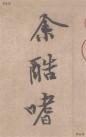 余酷嗜